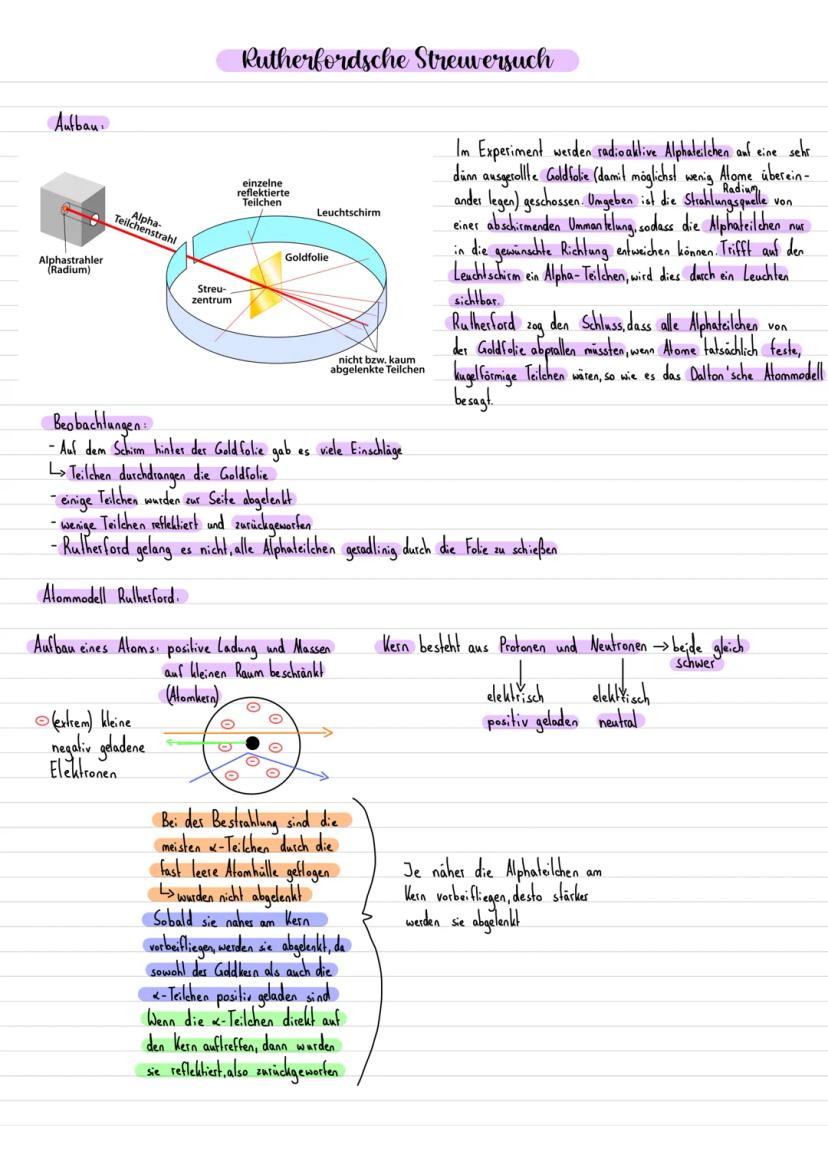 Rutherfordsche Streuversuch
Aufbau:
einzelne
reflektierte
Teilchen
Leuchtschirm
Alpha-
Teilchenstrahl
Goldfolie
Alphastrahler
(Radium)
Streu-
zentrum
nicht bzw. kaum
abgelenkte Teilchen
Im Experiment werden radioaktive Alphateilchen auf eine sehr
dünn ausgerollte Goldfolie (damit möglichst wenig Atome überein-
ander legen) geschossen. Umgeben ist die Strahlungsquelle von
Radium
einer abschirmenden Ummantelung, sodass die Alphateilchen nur
in die gewünschte Richtung entweichen können. Trifft auf den
Leuchtschirm ein Alpha-Teilchen, wird dies durch ein Leuchten
sichtbar.
Rutherford zog den Schluss, dass alle Alphateilchen von
der Goldfolie abprallen müssten, wenn Atome tatsächlich feste,
kugelförmige Teilchen wären, so wie es das Dalton'sche Atommodell
besagt.
Beobachtungen:
- Auf dem Schirm hinter der Goldfolie gab es viele Einschläge
↳ Teilchen durchdrangen die Goldfolie
- einige Teilchen wurden zur Seite abgelenkt
- wenige Teilchen reflektiert und zurückgeworfen
- Rutherford gelang es nicht, alle Alphateilchen geradlinig durch die Folie zu schießen
Atommodell Rutherford:
Aufbau eines Atoms: positive Ladung und Massen
auf kleinen Raum beschränkt
(Atomkern)
Kern besteht aus Protonen und Neutronen → beide gleich
schwer
elektrisch elektrisch
positiv geladen neutral
⊖ (extrem) kleine
negativ geladene
Elektronen
Bei der Bestrahlung sind die
meisten α-Teilchen durch die
fast leere Atomhülle geflogen
↳ wurden nicht abgelenkt
Sobald sie naher am Kern
vorbeifliegen, werden sie abgelenkt, da
sowohl der Goldkern als auch die
α-Teilchen positiv geladen sind
Wenn die α-Teilchen direkt auf
den Kern auftreffen, dann wurden
sie reflektiert, also zurückgeworfen
Je näher die Alphateilchen am
Kern vorbeifliegen, desto stärker
werden sie abgelenkt